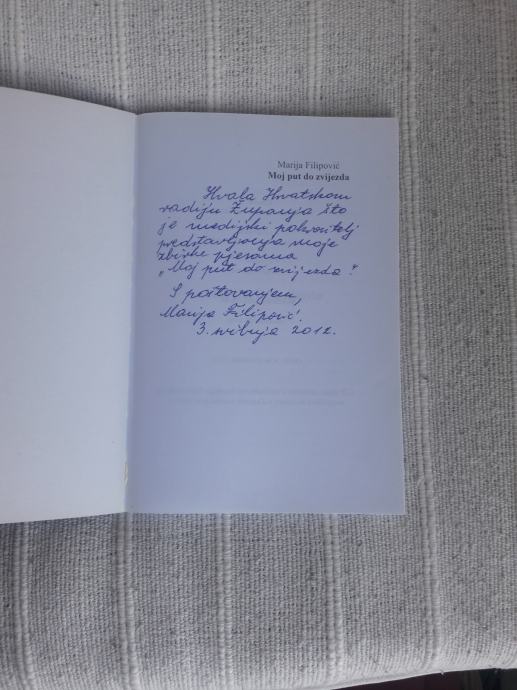 Marija Filipović
Moj put do zvijezda
Hvala Hrvatskom
radiju Županja što
je medijski pokrovitelj
predstavljanja moje
zbirke pjesama
„Moj put do zvijezda."
S poštovanjem,
Marija Filipović.
3. svibnja 2012.